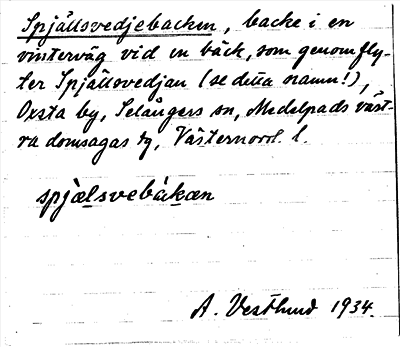 Spjällsvedjebacken, backe i en
vinterväg vid en bäck, som genomfly-
ter Spjällsvedjan (se detta namn!),
Oxsta by, Selångers sn, Medelpads väst-
ra domsagas tg, Västernorrl. l.
spjælsvebàkæn
A. Vestlund 1934.